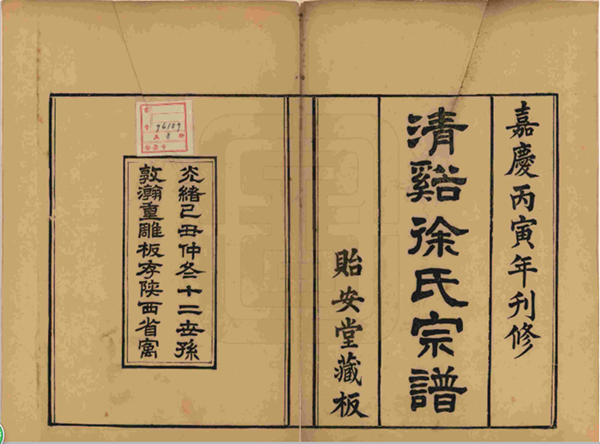 嘉慶丙寅年刋修
清谿徐氏宗譜
貽安堂藏板
光緒己丑仲冬十二世孫
敦瀚重雕板存陝西省寓
96189